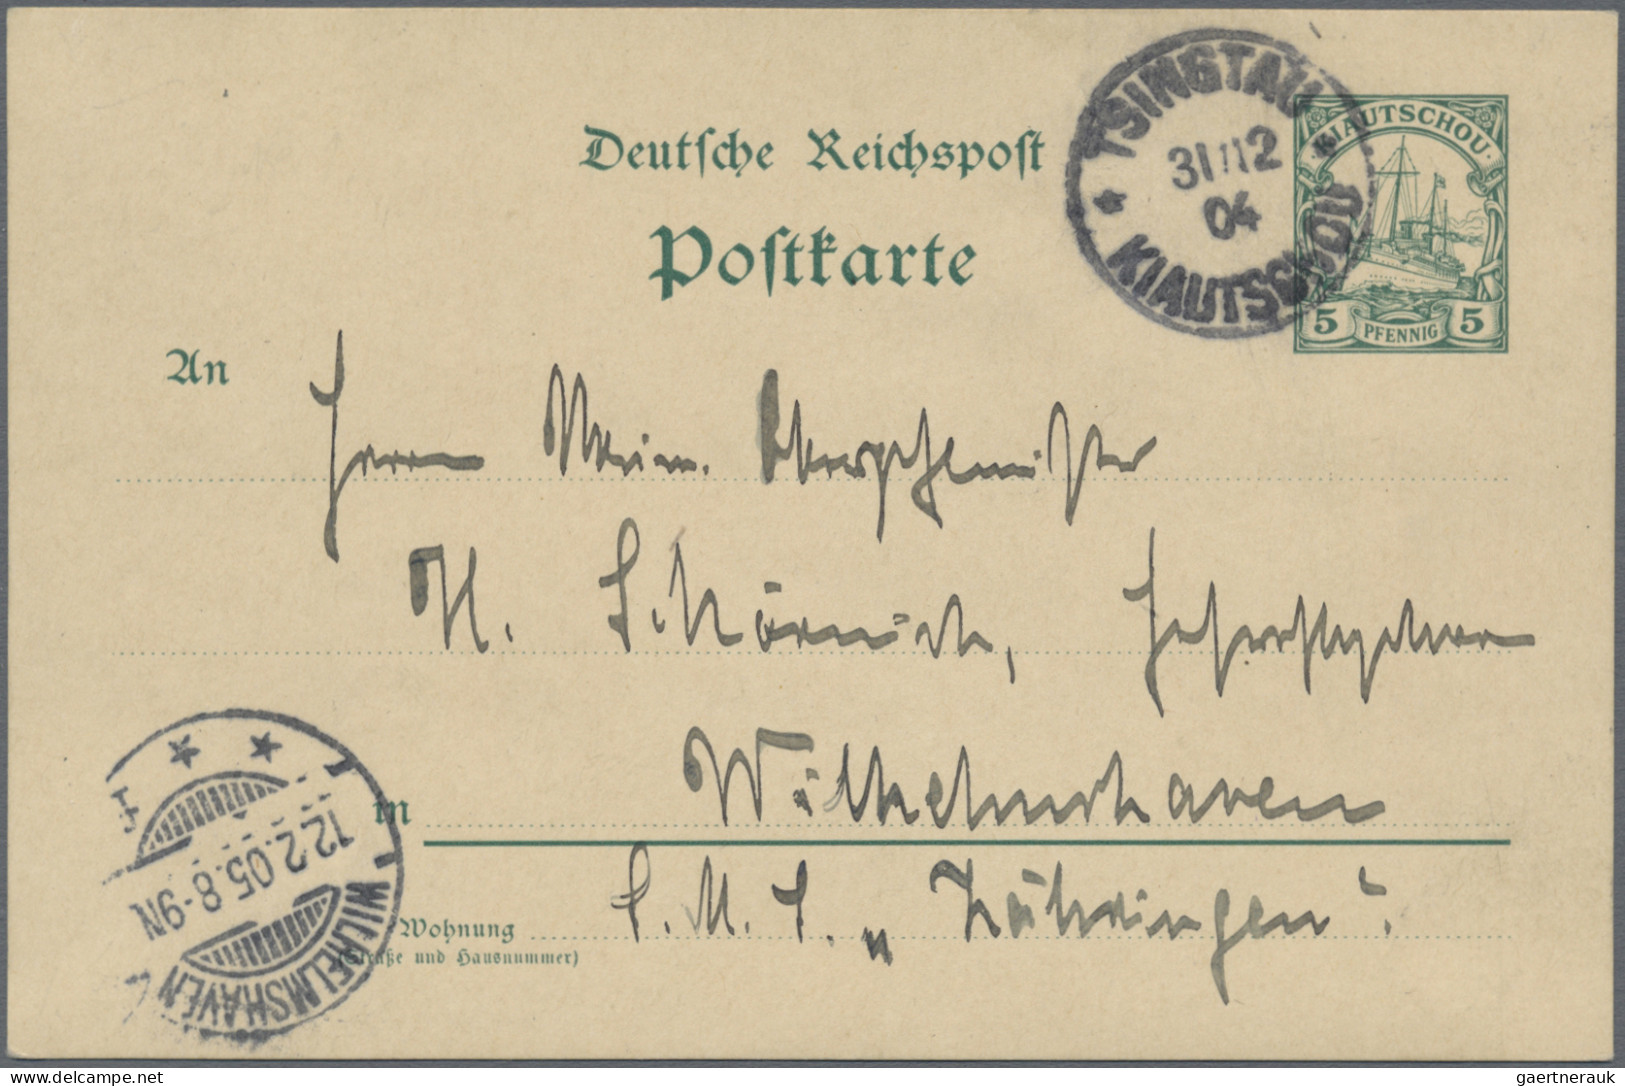 Deutsche Reichspost
Postkarte
TSINGTAU
31/12
04
KIAUTSCHOU
KIAUTSCHOU
5 PFENNIG 5
An
Herrn
H.
in Wilhelmshaven
S. M. S. „Zähringen“
Wohnung
(Straße und Hausnummer)
12.2.05.8-9N
WILHELMSHAVEN
delcampe.net
gaertnerauk